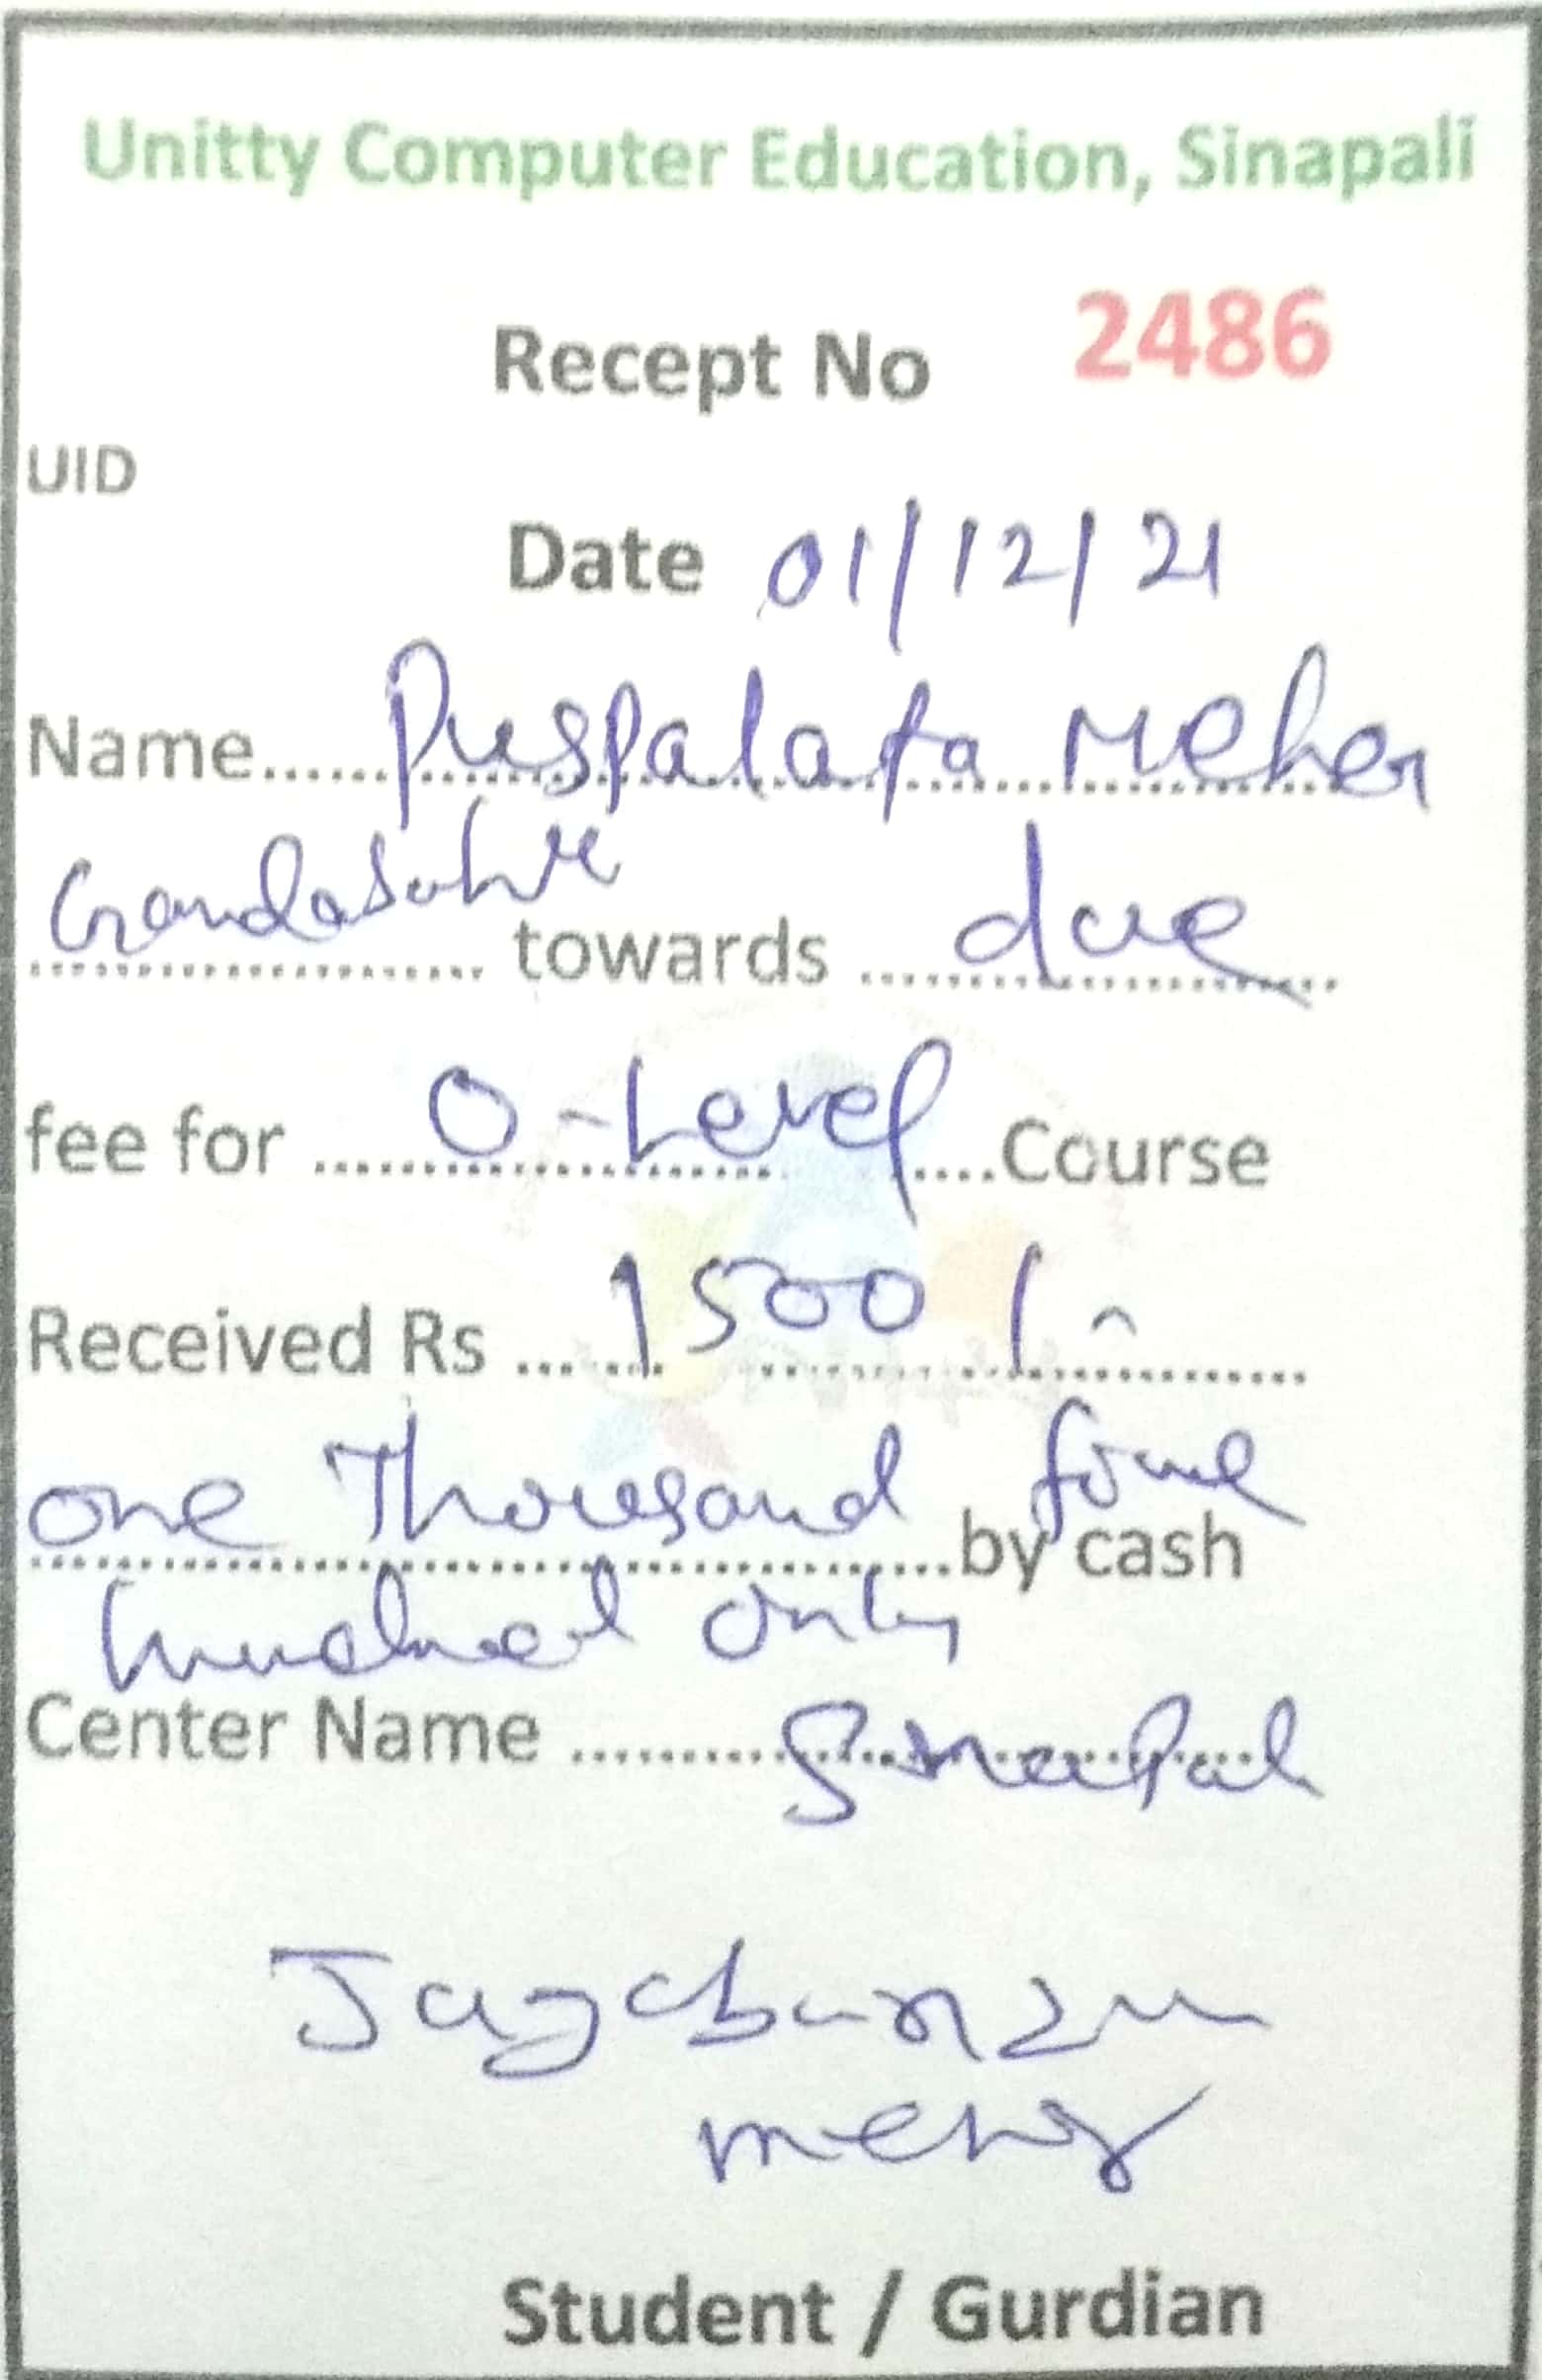 Unitty Computer Education, Sinapali
Recept No 2486
UID
Date 01/12/21
Name...... Puspalata Meher
.................... towards ..... due
fee for ..... O-Level ....Course
Received Rs ... 1500/-
one Thousand five
....................by cash
hundred only
Center Name .......... Sinapali
meher
Student / Gurdian